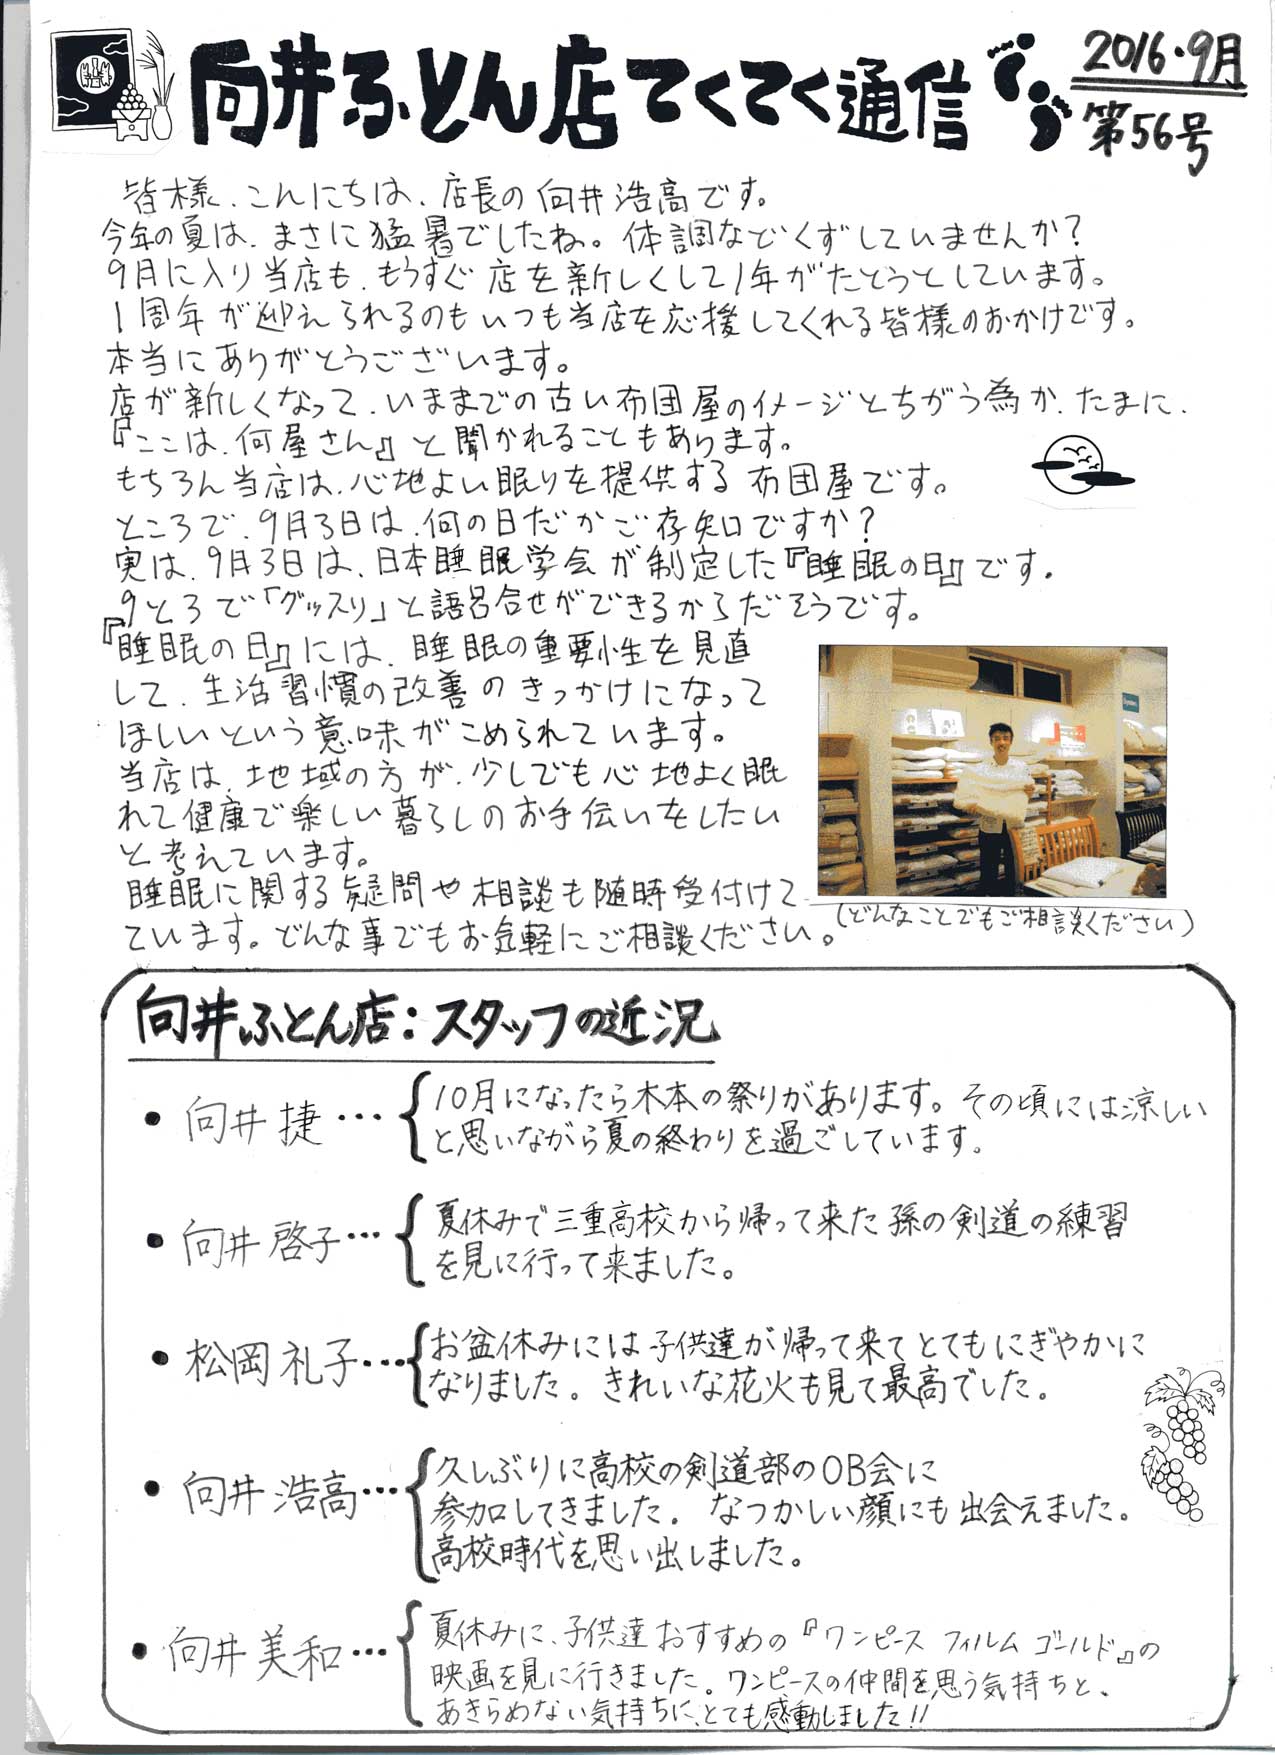 向井ふとん店てくてく通信
2016・9月
第56号
皆様、こんにちは、店長の向井浩高です。
今年の夏は、まさに猛暑でしたね。体調などくずしていませんか？
9月に入り当店も、もうすぐ店を新しくして1年がたとうとしています。
1周年が迎えられるのもいつも当店を応援してくれる皆様のおかげです。
本当にありがとうございます。
店が新しくなって、いままでの古い布団屋のイメージとちがう為か、たまに、
『ここは、何屋さん』と聞かれることもあります。
もちろん当店は、心地よい眠りを提供する布団屋です。
ところで、9月3日は、何の日だかご存知ですか？
実は、9月3日は、日本睡眠学会が制定した『睡眠の日』です。
9と3で「グッスリ」と語呂合せができるからだそうです。
『睡眠の日』には、睡眠の重要性を見直
して、生活習慣の改善のきっかけになって
ほしいという意味がこめられています。
当店は、地域の方が、少しでも心地よく眠
れて健康で楽しい暮らしのお手伝いをしたい
と考えています。
睡眠に関する疑問や相談も随時受付けて
ています。どんな事でもお気軽にご相談ください。
（どんなことでもご相談ください）
向井ふとん店：スタッフの近況
・向井 捷…
10月になったら木本の祭りがあります。その頃には涼しい
と思いながら夏の終わりを過ごしています。
・向井 啓子…
夏休みで三重高校から帰って来た孫の剣道の練習
を見に行って来ました。
・松岡 礼子…
お盆休みには子供達が帰って来てとてもにぎやかに
なりました。きれいな花火も見て最高でした。
・向井 浩高…
久しぶりに高校の剣道部のOB会に
参加してきました。なつかしい顔にも出会えました。
高校時代を思い出しました。
・向井 美和…
夏休みに、子供達おすすめの『ワンピース フィルム ゴールド』の
映画を見に行きました。ワンピースの仲間を思う気持ちと、
あきらめない気持ちに、とても感動しました!!